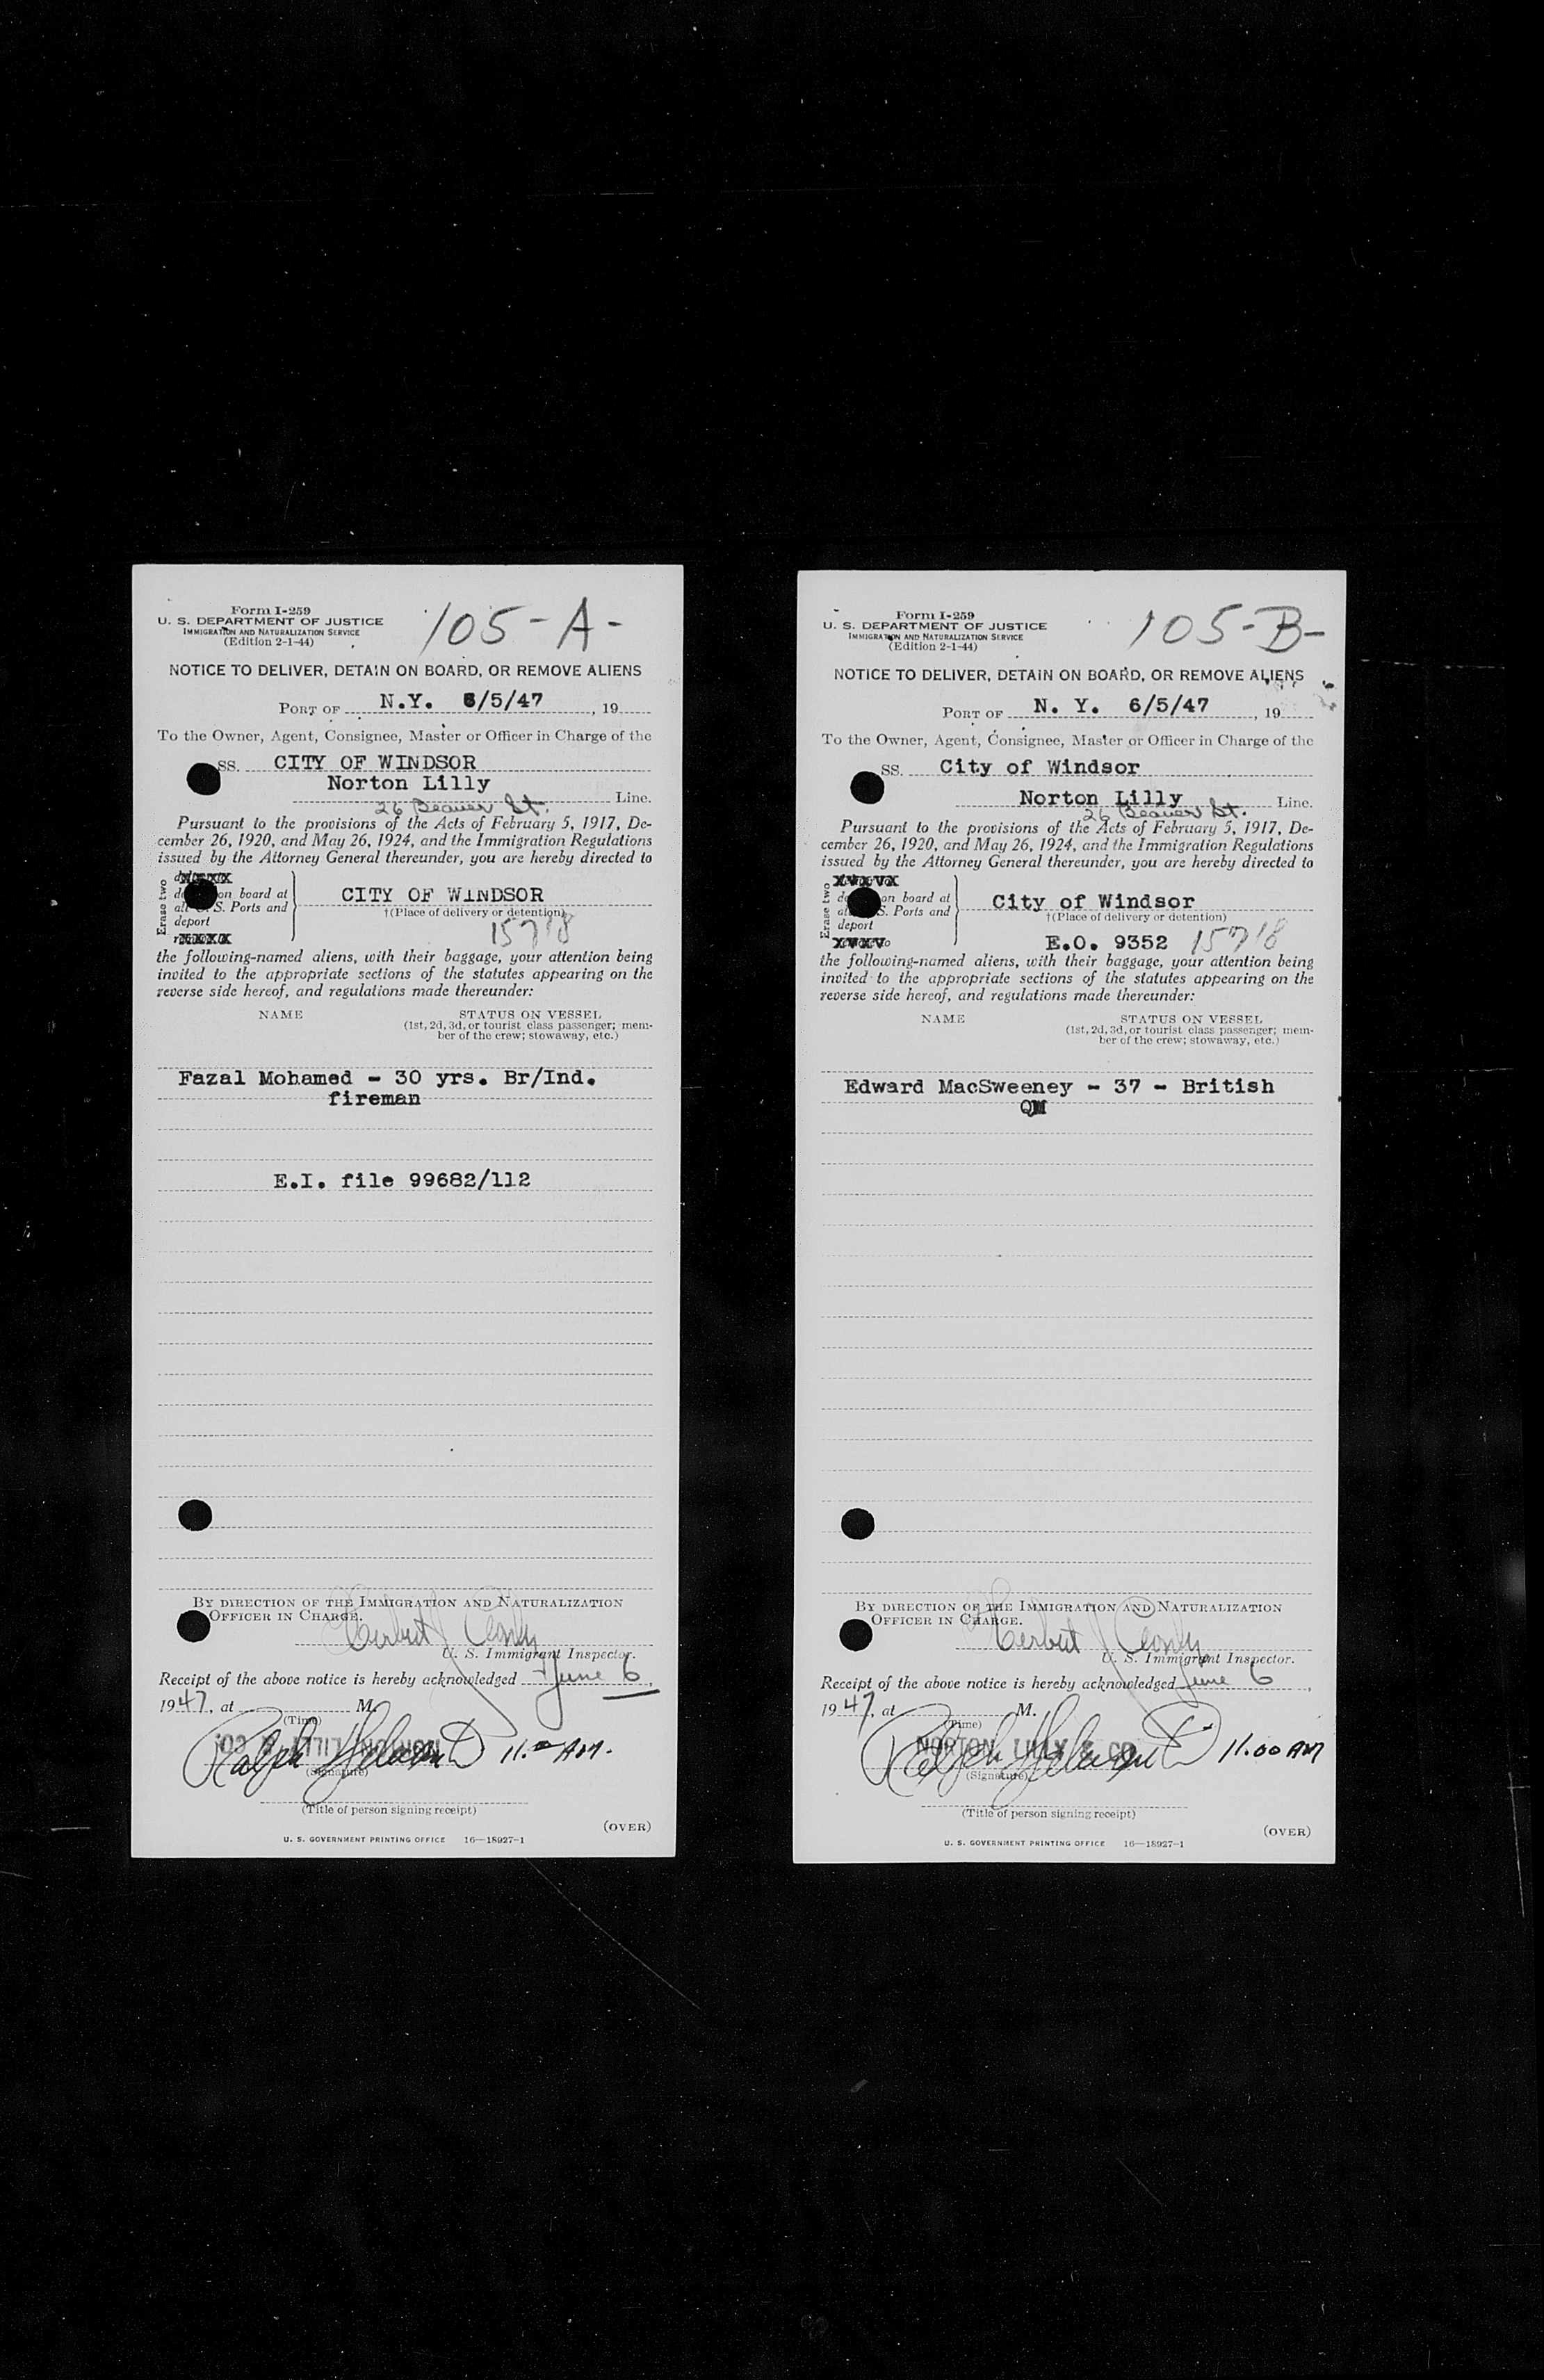 Form I-259
U. S. DEPARTMENT OF JUSTICE
IMMIGRATION AND NATURALIZATION SERVICE
(Edition 2-1-44)
105-A-
NOTICE TO DELIVER, DETAIN ON BOARD, OR REMOVE ALIENS
PORT OF N.Y. 6/5/47, 19
To the Owner, Agent, Consignee, Master or Officer in Charge of the
SS. CITY OF WINDSOR
Norton Lilly Line.
26 Beaver St.
Pursuant to the provisions of the Acts of February 5, 1917, De-
cember 26, 1920, and May 26, 1924, and the Immigration Regulations
issued by the Attorney General thereunder, you are hereby directed to
Erase two
on board at
S. Ports and
deport
CITY OF WINDSOR
†(Place of delivery or detention)
15718
the following-named aliens, with their baggage, your attention being
invited to the appropriate sections of the statutes appearing on the
reverse side hereof, and regulations made thereunder:
NAME
STATUS ON VESSEL
(1st, 2d, 3d, or tourist class passenger; mem-
ber of the crew; stowaway, etc.)
Fazal Mohamed - 30 yrs. Br/Ind.
fireman
E.I. file 99682/112
BY DIRECTION OF THE IMMIGRATION AND NATURALIZATION
OFFICER IN CHARGE.
Herbert
U. S. Immigrant Inspector.
Receipt of the above notice is hereby acknowledged June 6,
1947, at M.
(Time)
NORTON LILLY & CO.
Ralph 11.00 AM.
(Signature)
(Title of person signing receipt)
(OVER)
U. S. GOVERNMENT PRINTING OFFICE 16—18927-1
Form I-259
U. S. DEPARTMENT OF JUSTICE
IMMIGRATION AND NATURALIZATION SERVICE
(Edition 2-1-44)
105-B-
NOTICE TO DELIVER, DETAIN ON BOARD, OR REMOVE ALIENS
PORT OF N. Y. 6/5/47, 19
To the Owner, Agent, Consignee, Master or Officer in Charge of the
SS. City of Windsor
Norton Lilly Line.
26 Beaver St.
Pursuant to the provisions of the Acts of February 5, 1917, De-
cember 26, 1920, and May 26, 1924, and the Immigration Regulations
issued by the Attorney General thereunder, you are hereby directed to
Erase two
on board at
S. Ports and
deport
City of Windsor
†(Place of delivery or detention)
E.O. 9352 15718
the following-named aliens, with their baggage, your attention being
invited to the appropriate sections of the statutes appearing on the
reverse side hereof, and regulations made thereunder:
NAME
STATUS ON VESSEL
(1st, 2d, 3d, or tourist class passenger; mem-
ber of the crew; stowaway, etc.)
Edward MacSweeney - 37 - British
QM
BY DIRECTION OF THE IMMIGRATION AND NATURALIZATION
OFFICER IN CHARGE.
Herbert
U. S. Immigrant Inspector.
Receipt of the above notice is hereby acknowledged June 6,
1947, at M.
(Time)
NORTON LILLY & CO.
Ralph 11.00 AM
(Signature)
(Title of person signing receipt)
(OVER)
U. S. GOVERNMENT PRINTING OFFICE 16—18927-1